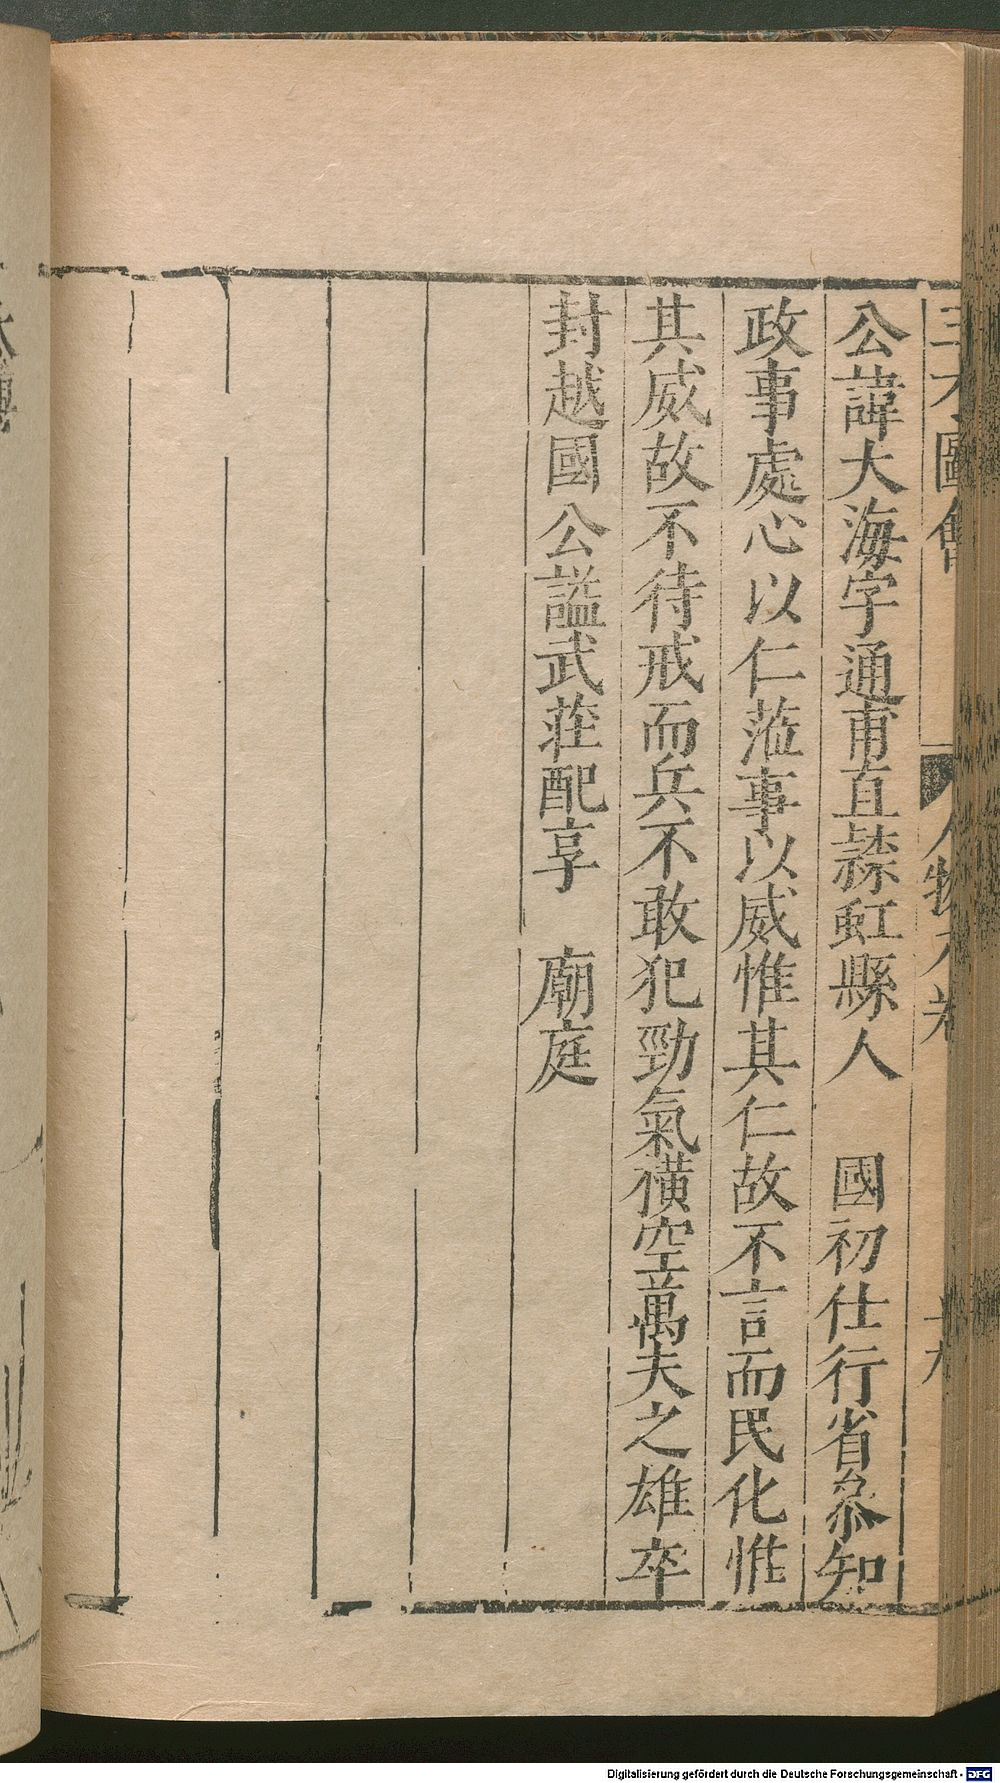 三才圖會 人物八卷
公諱大海字通甫直隷虹縣人 國初仕行省叅知
政事處心以仁蒞事以威惟其仁故不言而民化惟
其威故不待戒而兵不敢犯勁氣橫空萬夫之雄卒
封越國公謚武莊配享 廟庭
Digitalisierung gefördert durch die Deutsche Forschungsgemeinschaft - DFG